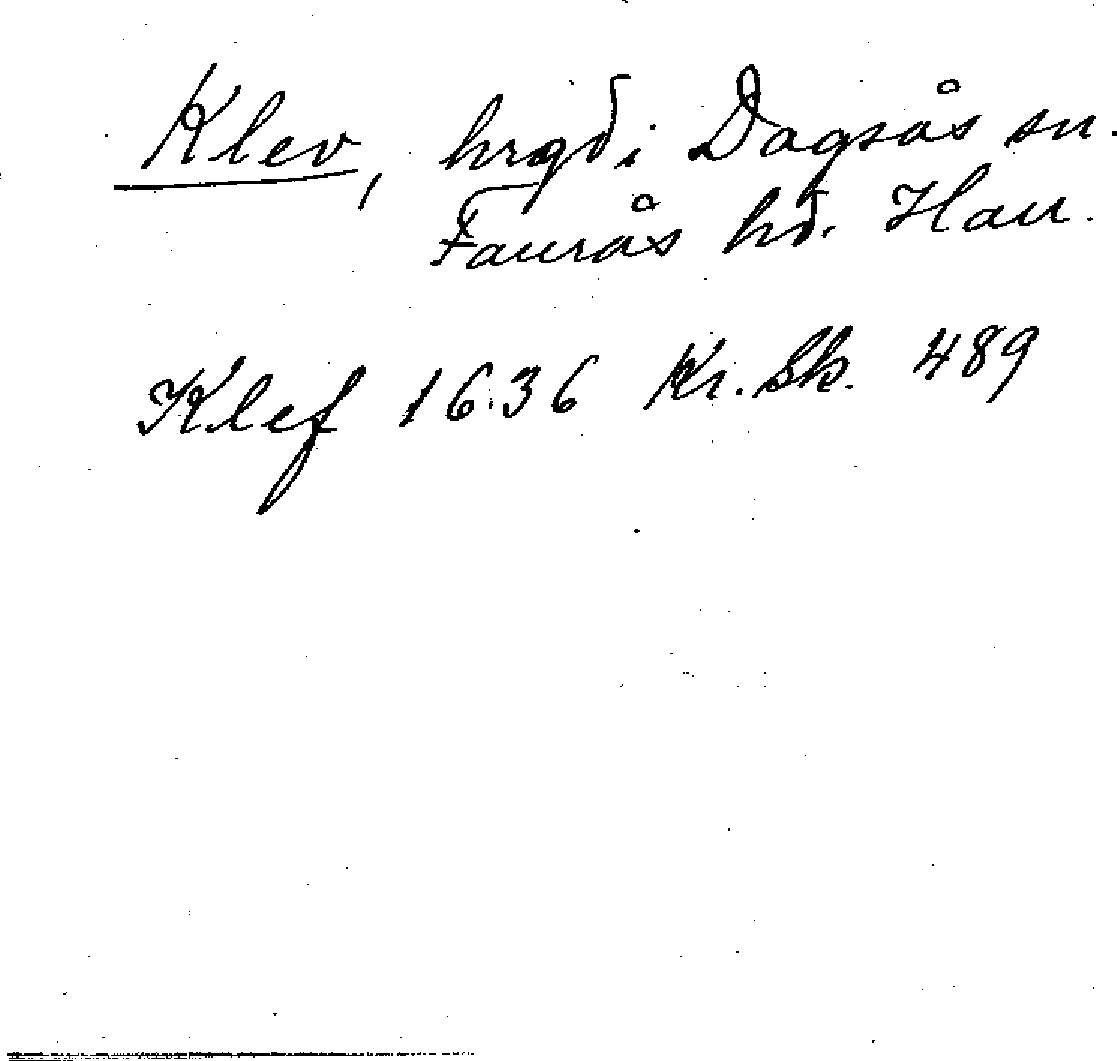 Klev, hrgd i Dagsås sn.
Faurås hd. Hall.
Klef 1636 Kr. Sk. 489